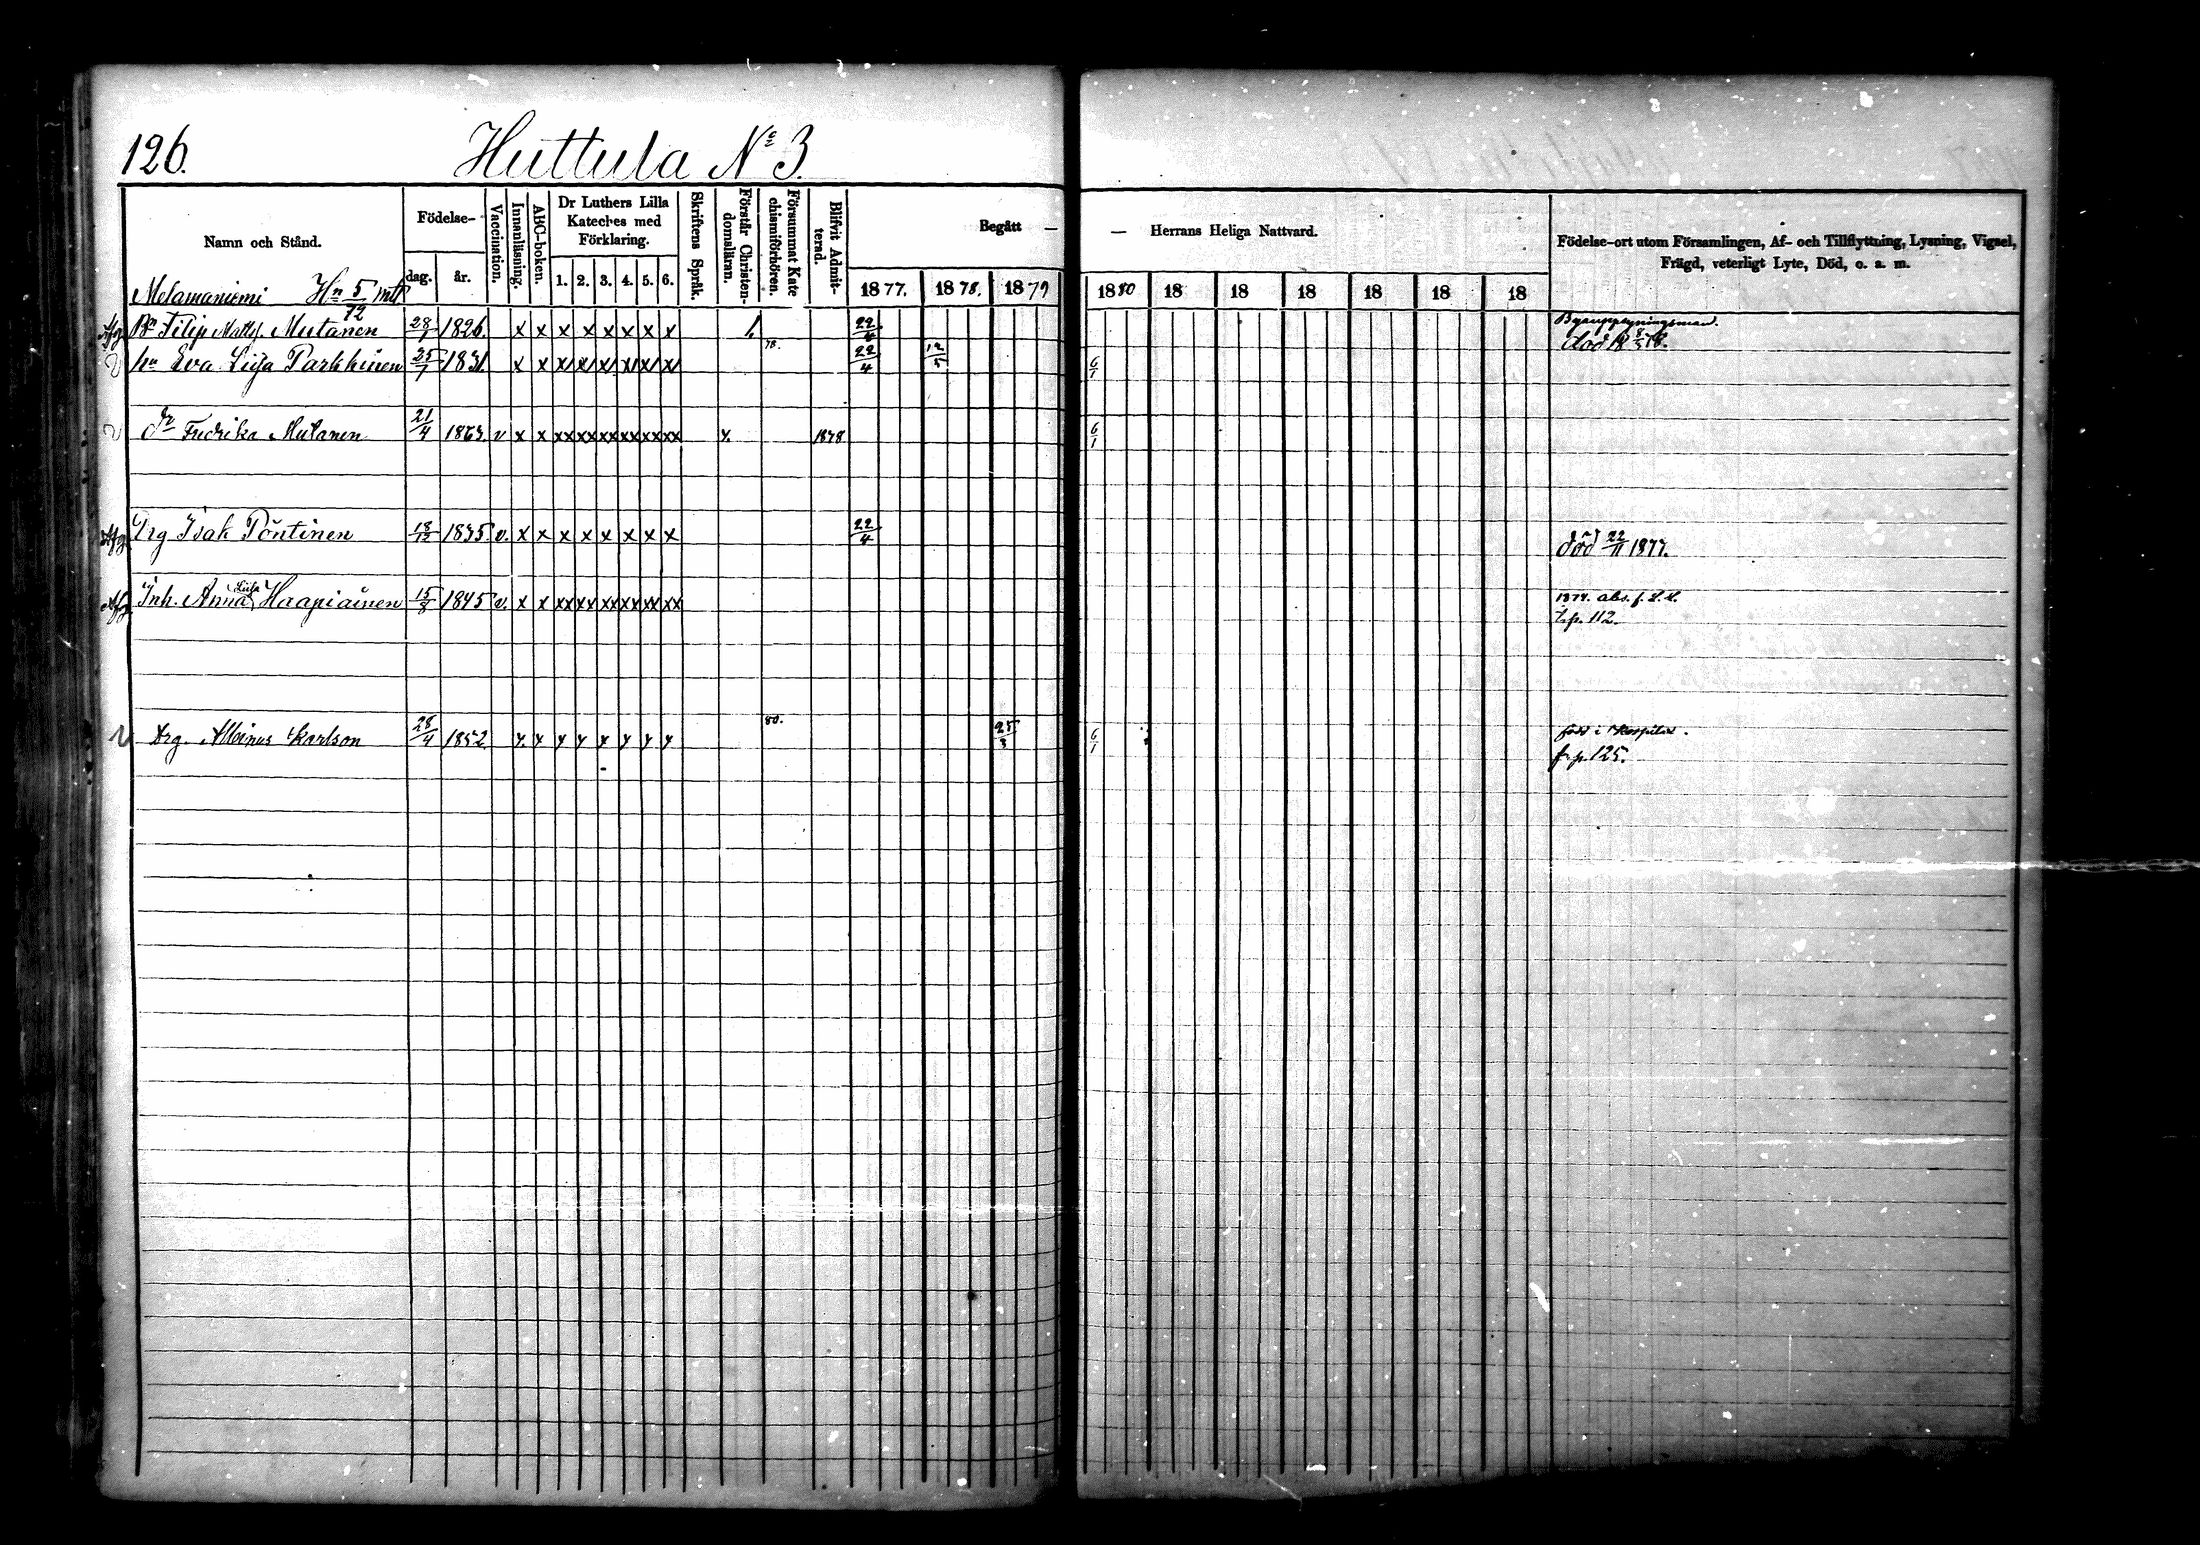 126. Huttula No 3.
Namn och Stånd.
Födelse-
dag. år.
Vaccination.
Innanläsning.
ABC-boken.
Dr Luthers Lilla Kateches med Förklaring.
1. 2. 3. 4. 5. 6.
Skriftens Språk.
Förstår Christen-domsläran.
Försummat Kate chismiförhören.
Blifvit Admit-terad.
Begått — — Herrans Heliga Nattvard.
1877. 1878. 1879 1880 18 18 18 18 18 18
Födelse-ort utom Församlingen, Af- och Tillflyttning, Lysning, Vigsel,
Frägd, veterligt Lyte, Död, o. a. m.
Melamaniemi Hn 5/72 mtl
Bn Filip Matts. Mutanen 28/1 1826. x x x x x x x x 22/4
död 18 8/5 78.
hu Eva Liisa Parkkinen 25/1 1831. x x x x x x x x 78. 22/4 12/5 6/1
dr Fredrika Mutanen 21/4 1863. v x x xx xx xx xx xx xx x. 1878 6/1
Drg Isak Pöntinen 18/12 1835 v. x x x x x x x x 22/4 död 22/11 1877.
Inh. Anna Liisa Haapiainen 15/8 1845 v. x x xx xx xx xx xx xx 1874. abs. f. L. L.
t. p. 112.
Drg. Albinus Karlson 28/4 1852 x. x x x x x x x 80. 25/3 6/1 född i
fr p. 125.